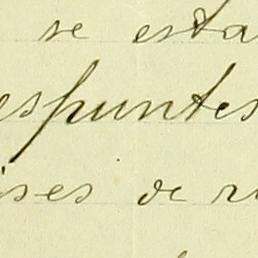 se esta
espuntes
ises de r